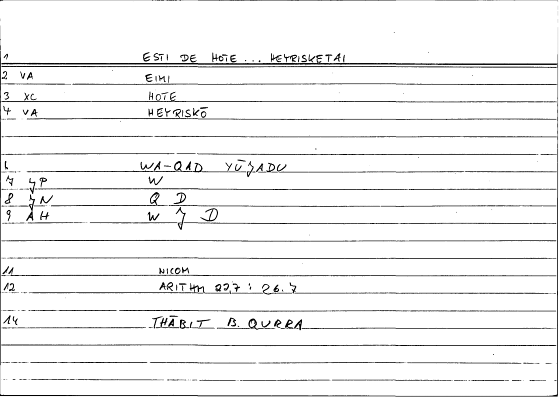 1 ESTI DE HOTE ... HEYRISKETAI
2 VA EIMI
3 XC HOTE
4 VA HEYRISKŌ
6 WA-QAD YŪǦADU
7 ǦP W
8 ǦN Q D
9 AH W Ǧ D
11 NICOM
12 ARITHM 22,7 : 26.7
14 THĀBIT B. QURRA